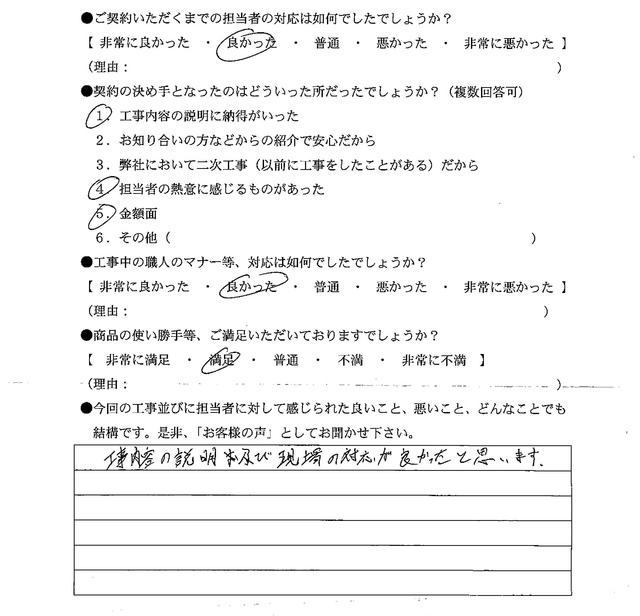 ●ご契約いただくまでの担当者の対応は如何でしたでしょうか？
【 非常に良かった ・ 良かった ・ 普通 ・ 悪かった ・ 非常に悪かった 】
（理由： ）
●契約の決め手となったのはどういった所だったでしょうか？（複数回答可）
１．工事内容の説明に納得がいった
２．お知り合いの方などからの紹介で安心だから
３．弊社において二次工事（以前に工事をしたことがある）だから
４．担当者の熱意に感じるものがあった
５．金額面
６．その他（ ）
●工事中の職人のマナー等、対応は如何でしたでしょうか？
【 非常に良かった ・ 良かった ・ 普通 ・ 悪かった ・ 非常に悪かった 】
（理由： ）
●商品の使い勝手等、ご満足いただいておりますでしょうか？
【 非常に満足 ・ 満足 ・ 普通 ・ 不満 ・ 非常に不満 】
（理由： ）
●今回の工事並びに担当者に対して感じられた良いこと、悪いこと、どんなことでも
結構です。是非、「お客様の声」としてお聞かせ下さい。
仕事内容の説明及び現場の対応が良かったと思います。